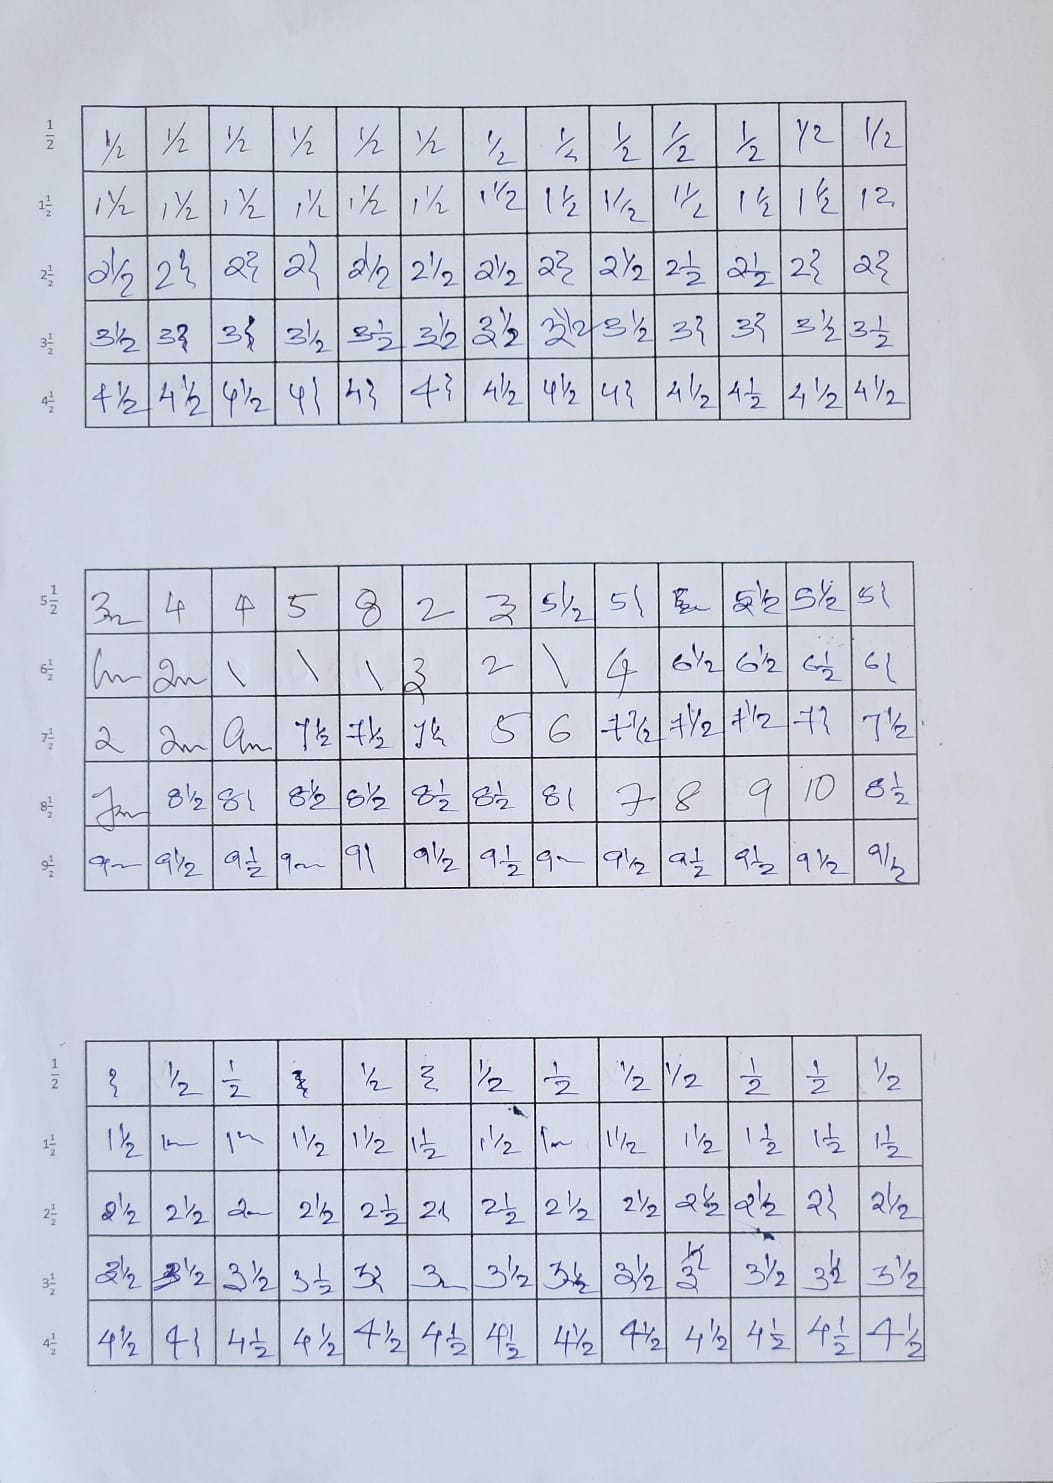 1/2 1/2 1/2 1/2 1/2 1/2 1/2 1/2 1/2 1/2 1/2 1/2 1/2 1/2
1 1/2 1 1/2 1 1/2 1 1/2 1 1/2 1 1/2 1 1/2 1 1/2 1 1/2 1 1/2 1 1/2 1 1/2 1 1/2 12
2 1/2 2 1/2 2 2 2 2 1/2 2 1/2 2 1/2 2 2 1/2 2 1/2 2 1/2 2 2
3 1/2 3 1/2 3 3 3 1/2 3 1/2 3 1/2 3 1/2 3 1/2 3 1/2 3 3 3 1/2 3 1/2
4 1/2 4 1/2 4 1/2 4 1/2 4 4 4 4 1/2 4 1/2 4 4 1/2 4 1/2 4 1/2 4 1/2
5 1/2 3 4 4 5 8 2 3 5 1/2 5 5 1/2 5 1/2 5
6 1/2 2 1 1 1 3 2 1 4 6 1/2 6 1/2 6 1/2 6
7 1/2 2 2 9 7 1/2 7 1/2 7 1/2 5 6 7 1/2 7 1/2 7 1/2 7 7 1/2
8 1/2 7 8 1/2 8 8 1/2 8 1/2 8 1/2 8 1/2 8 7 8 9 10 8 1/2
9 1/2 9 9 1/2 9 1/2 9 9 9 1/2 9 1/2 9 9 1/2 9 1/2 9 1/2 9 1/2 9 1/2
1/2 1/2 1/2 1/2 1/2 1/2 1/2 1/2 1/2 1/2 1/2
1 1/2 1 1/2 1 1 1 1/2 1 1/2 1 1/2 1 1/2 1 1 1/2 1 1/2 1 1/2 1 1/2 1 1/2
2 1/2 2 1/2 2 1/2 2 2 1/2 2 1/2 2 2 1/2 2 1/2 2 1/2 2 1/2 2 1/2 2 2 1/2
3 1/2 3 1/2 3 1/2 3 1/2 3 1/2 3 3 3 1/2 3 1/2 3 1/2 3 1/2 3 1/2 3 1/2 3 1/2
4 1/2 4 1/2 4 4 1/2 4 1/2 4 1/2 4 1/2 4 1/2 4 1/2 4 1/2 4 1/2 4 1/2 4 1/2 4 1/2